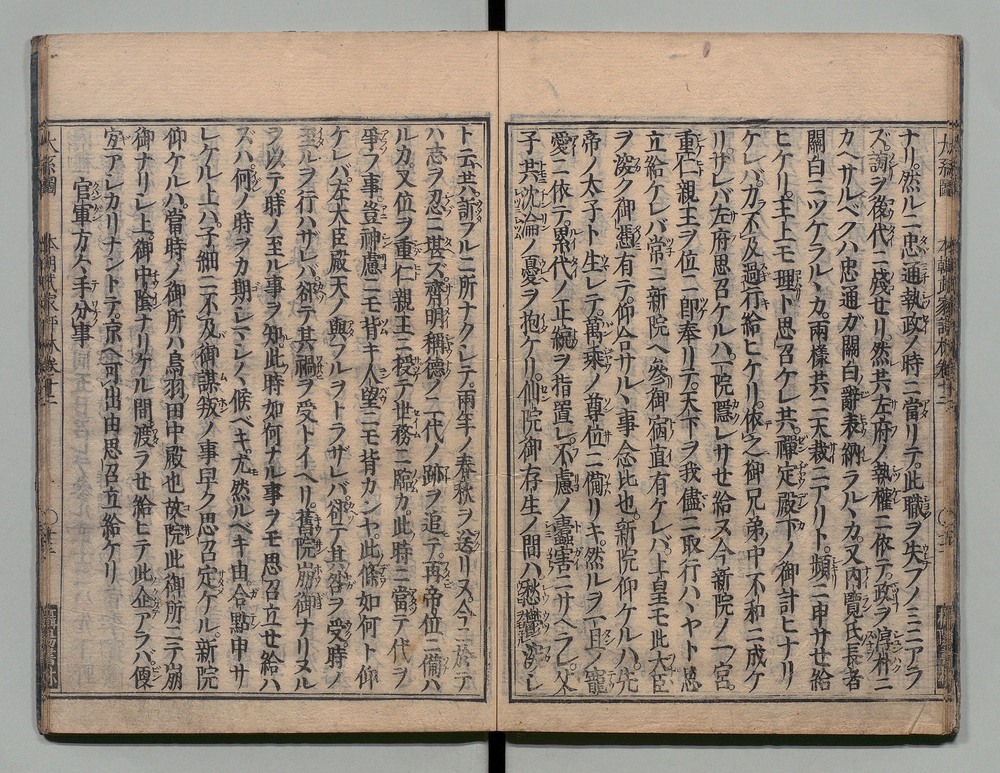 ナリ。然ルニ忠通執政ノ時ニ當リテ。此職ヲ失フノミニアラ
ズ。謗ヲ後代ニ殘セリ。然共左府ノ執權ニ依テ。政ヲ淳朴ニ
カヘサルベクハ忠通ガ關白辭表納ラルヽカ。又內覽氏長者
關白ニツケラルヽカ。兩樣共ニ天裁ニアリト。頻ニ申サせ給
ヒケリ。主上モ理ト思召ケレ共。禪定殿下ノ御計ヒナリ
ケレバ。力不及過行給ヒケリ。依之御兄弟ノ中不和ニ成ケ
リ。サレバ左府思召ケルハ。一院隱レサせ給ヌ。今新院ノ一宮。
重仁親王ヲ位ニ卽奉リテ。天下ヲ我儘ニ取行ハヽヤト思
立給ケレバ。常ニ新院ヘ參。御宿直有ケレバ。上皇モ此大臣
ヲ深ク御憑有テ。仰合サルヽ事念比也。新院仰ケルハ。先
帝ノ太子ト生レテ。萬乘ノ尊位ニ備リキ。然ルヲ一旦ノ寵
愛ニ依テ。累代ノ正統ヲ指置レ。不慮ノ蠹害ニサヘラレ。父
子共沈淪ノ憂ヲ抱ケリ。仙院御存生ノ間ハ。愁鬱深シ
ト云共。訴フルニ所ナクシテ。兩年ノ春秋ヲ送リヌ。今ニ於テ
ハ志ヲ忍ニ堪ス。齊明稱德ノ二代ノ跡ヲ追テ。再帝位ニ備ハ
ルカ。又位ヲ重仁親王ニ授テ。世務ニ臨カ。此時ニ當テ代ヲ
爭フ事。豈神慮ニモ背キ。人望ニモ背カンヤ。此條如何ト仰
ケレバ。左大臣殿天ノ與フルヲトラザレバ。却テ其咎ヲ受。時ノ
至ルヲ行ハザレバ。却テ其禍ヲ受トイヘリ。舊院崩御ナリヌル
ヲ以テ。時ノ至ル事ヲ知。此時如何ナル事ヲモ思召立せ給ハ
ズハ。何ノ時ヲカ期シマシ〳〵候ヘキ。尤然ルベキ由合點申サ
レケル上ハ。子細ニ不及。御謀叛ノ事早ク思召定ケル。新院
仰ケルハ。當時ノ御所ハ鳥羽田中殿也。故院此御所ニテ崩
御ナリシ上。御中陰ナリケル間。渡ラせ給ヒテ此企アラバ。便
宜アシカリナントテ。京ヘ可出由思召立給ケリ
官軍方々手分事